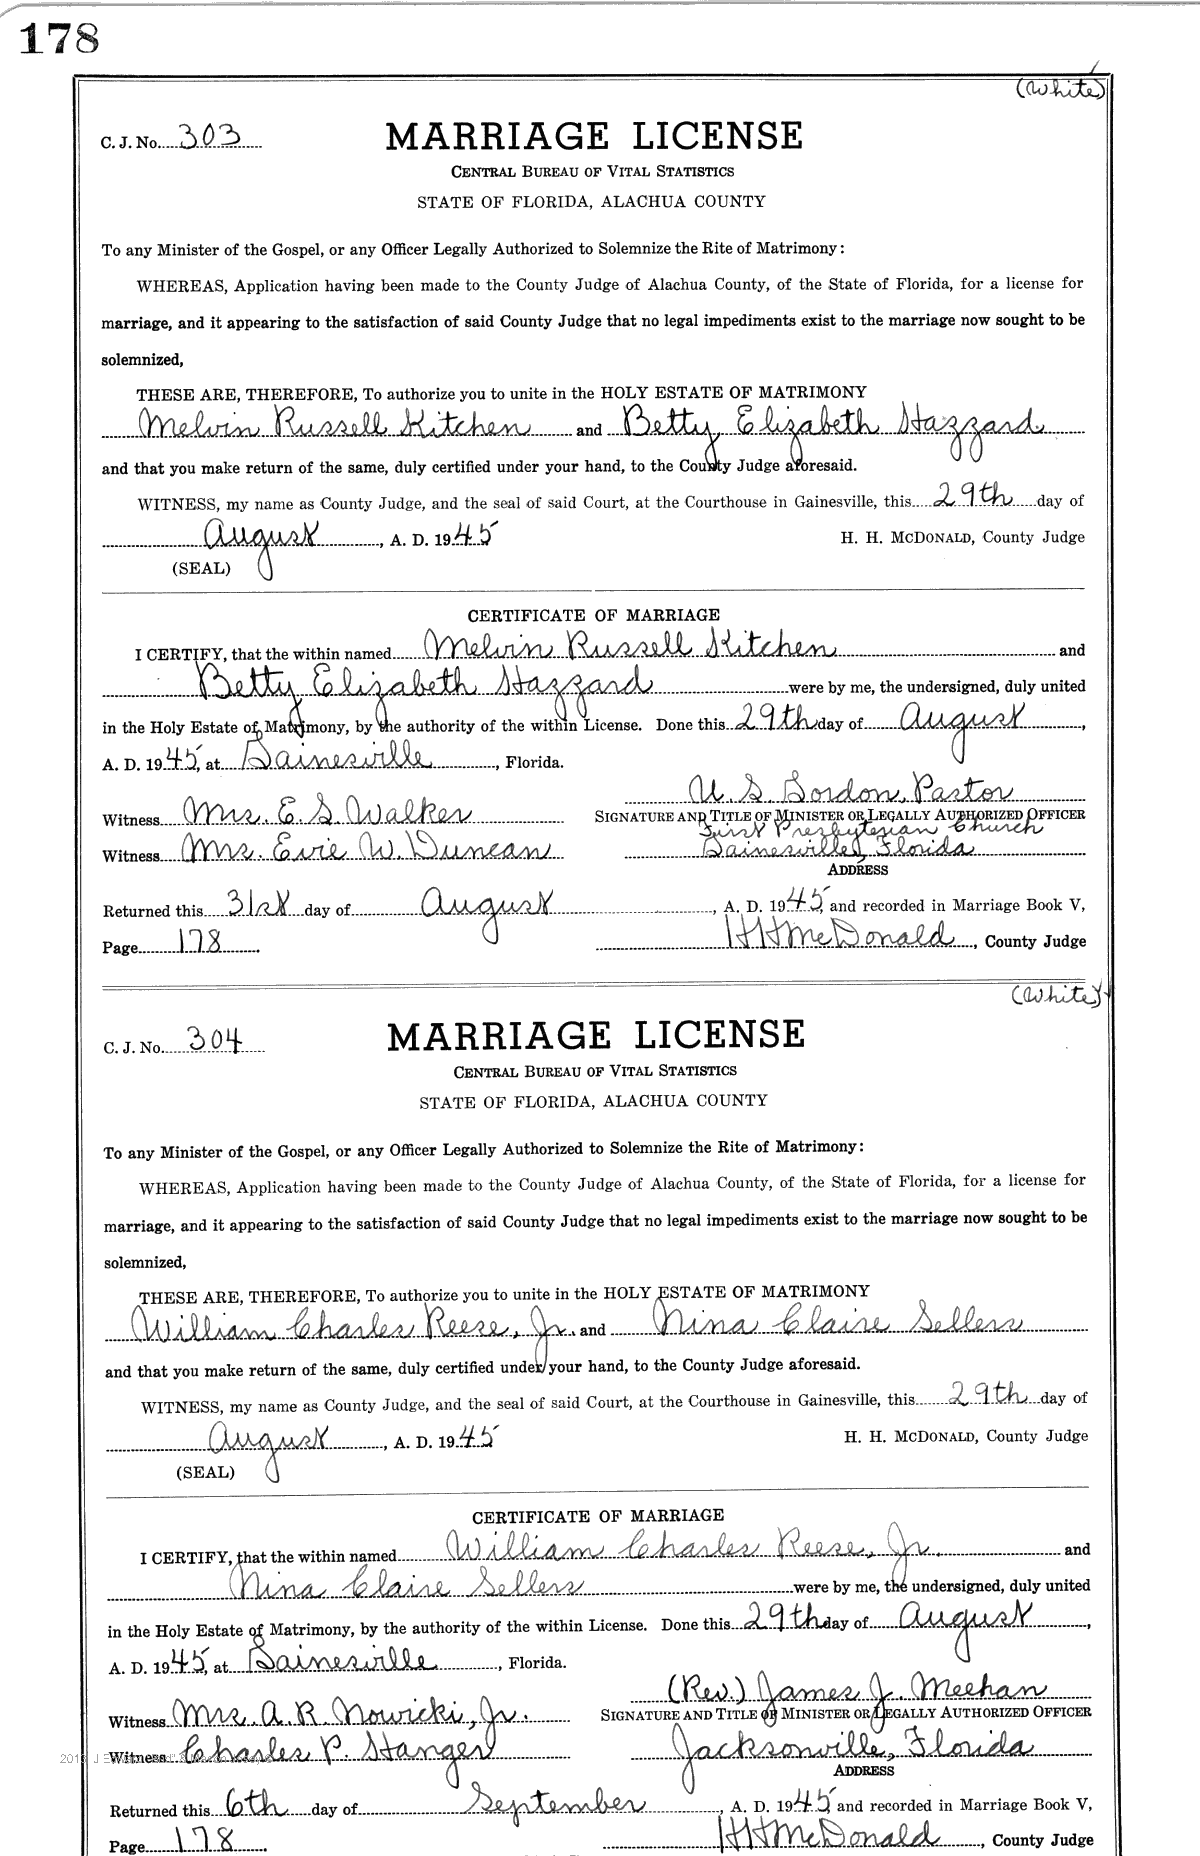 178
(White)
C. J. No. 303 MARRIAGE LICENSE
CENTRAL BUREAU OF VITAL STATISTICS
STATE OF FLORIDA, ALACHUA COUNTY
To any Minister of the Gospel, or any Officer Legally Authorized to Solemnize the Rite of Matrimony:
WHEREAS, Application having been made to the County Judge of Alachua County, of the State of Florida, for a license for
marriage, and it appearing to the satisfaction of said County Judge that no legal impediments exist to the marriage now sought to be
solemnized,
THESE ARE, THEREFORE, To authorize you to unite in the HOLY ESTATE OF MATRIMONY
Melvin Russell Kitchen and Betty Elizabeth Hazzard
and that you make return of the same, duly certified under your hand, to the County Judge aforesaid.
WITNESS, my name as County Judge, and the seal of said Court, at the Courthouse in Gainesville, this 29th day of
August, A. D. 1945 H. H. MCDONALD, County Judge
(SEAL)
CERTIFICATE OF MARRIAGE
I CERTIFY, that the within named Melvin Russell Kitchen and
Betty Elizabeth Hazzard were by me, the undersigned, duly united
in the Holy Estate of Matrimony, by the authority of the within License. Done this 29th day of August,
A. D. 1945, at Gainesville, Florida.
U. S. Gordon, Pastor
Witness Mrs. E. S. Walker SIGNATURE AND TITLE OF MINISTER OR LEGALLY AUTHORIZED OFFICER
First Presbyterian Church
Witness Mrs. Evie W. Duncan Gainesville, Florida
ADDRESS
Returned this 31st day of August, A. D. 1945, and recorded in Marriage Book V,
Page 178 H H McDonald, County Judge
(White)
C. J. No. 304 MARRIAGE LICENSE
CENTRAL BUREAU OF VITAL STATISTICS
STATE OF FLORIDA, ALACHUA COUNTY
To any Minister of the Gospel, or any Officer Legally Authorized to Solemnize the Rite of Matrimony:
WHEREAS, Application having been made to the County Judge of Alachua County, of the State of Florida, for a license for
marriage, and it appearing to the satisfaction of said County Judge that no legal impediments exist to the marriage now sought to be
solemnized,
THESE ARE, THEREFORE, To authorize you to unite in the HOLY ESTATE OF MATRIMONY
William Charles Reese, Jr. and Nina Claire Sellers
and that you make return of the same, duly certified under your hand, to the County Judge aforesaid.
WITNESS, my name as County Judge, and the seal of said Court, at the Courthouse in Gainesville, this 29th day of
August, A. D. 1945 H. H. MCDONALD, County Judge
(SEAL)
CERTIFICATE OF MARRIAGE
I CERTIFY, that the within named William Charles Reese, Jr. and
Nina Claire Sellers were by me, the undersigned, duly united
in the Holy Estate of Matrimony, by the authority of the within License. Done this 29th day of August,
A. D. 1945, at Gainesville, Florida.
(Rev.) James J. Meehan
Witness Mrs. A. R. Nowicki, Jr. SIGNATURE AND TITLE OF MINISTER OR LEGALLY AUTHORIZED OFFICER
Witness Charles P. Stanger Jacksonville, Florida
ADDRESS
Returned this 6th day of September, A. D. 1945, and recorded in Marriage Book V,
Page 178 H H McDonald, County Judge